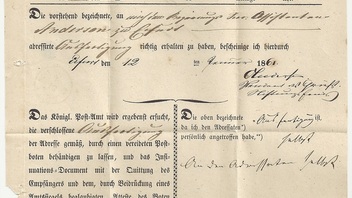 Die vorstehend bezeichnete, an
Anderson zu Erfurt
adressirte Ausfertigung richtig erhalten zu haben, bescheinige ich hierdurch
Erfurt den 12 ten Januar 186
Das Königl. Post-Amt wird ergebenst ersucht,
die verschlossene Ausfertigung
der Adresse gemäß, durch einen vereideten Post-
boten behändigen zu lassen, und das Insi-
nuations-Document mit der Quittung des
Empfängers und dem, durch Beidrückung eines
Amtssiegels beglaubigten Atteste des Boten
Die oben bezeichnete Ausfertigung ist.
da ich den Adressaten)
persönlich angetroffen habe.") selbst
An den Adressaten selbst